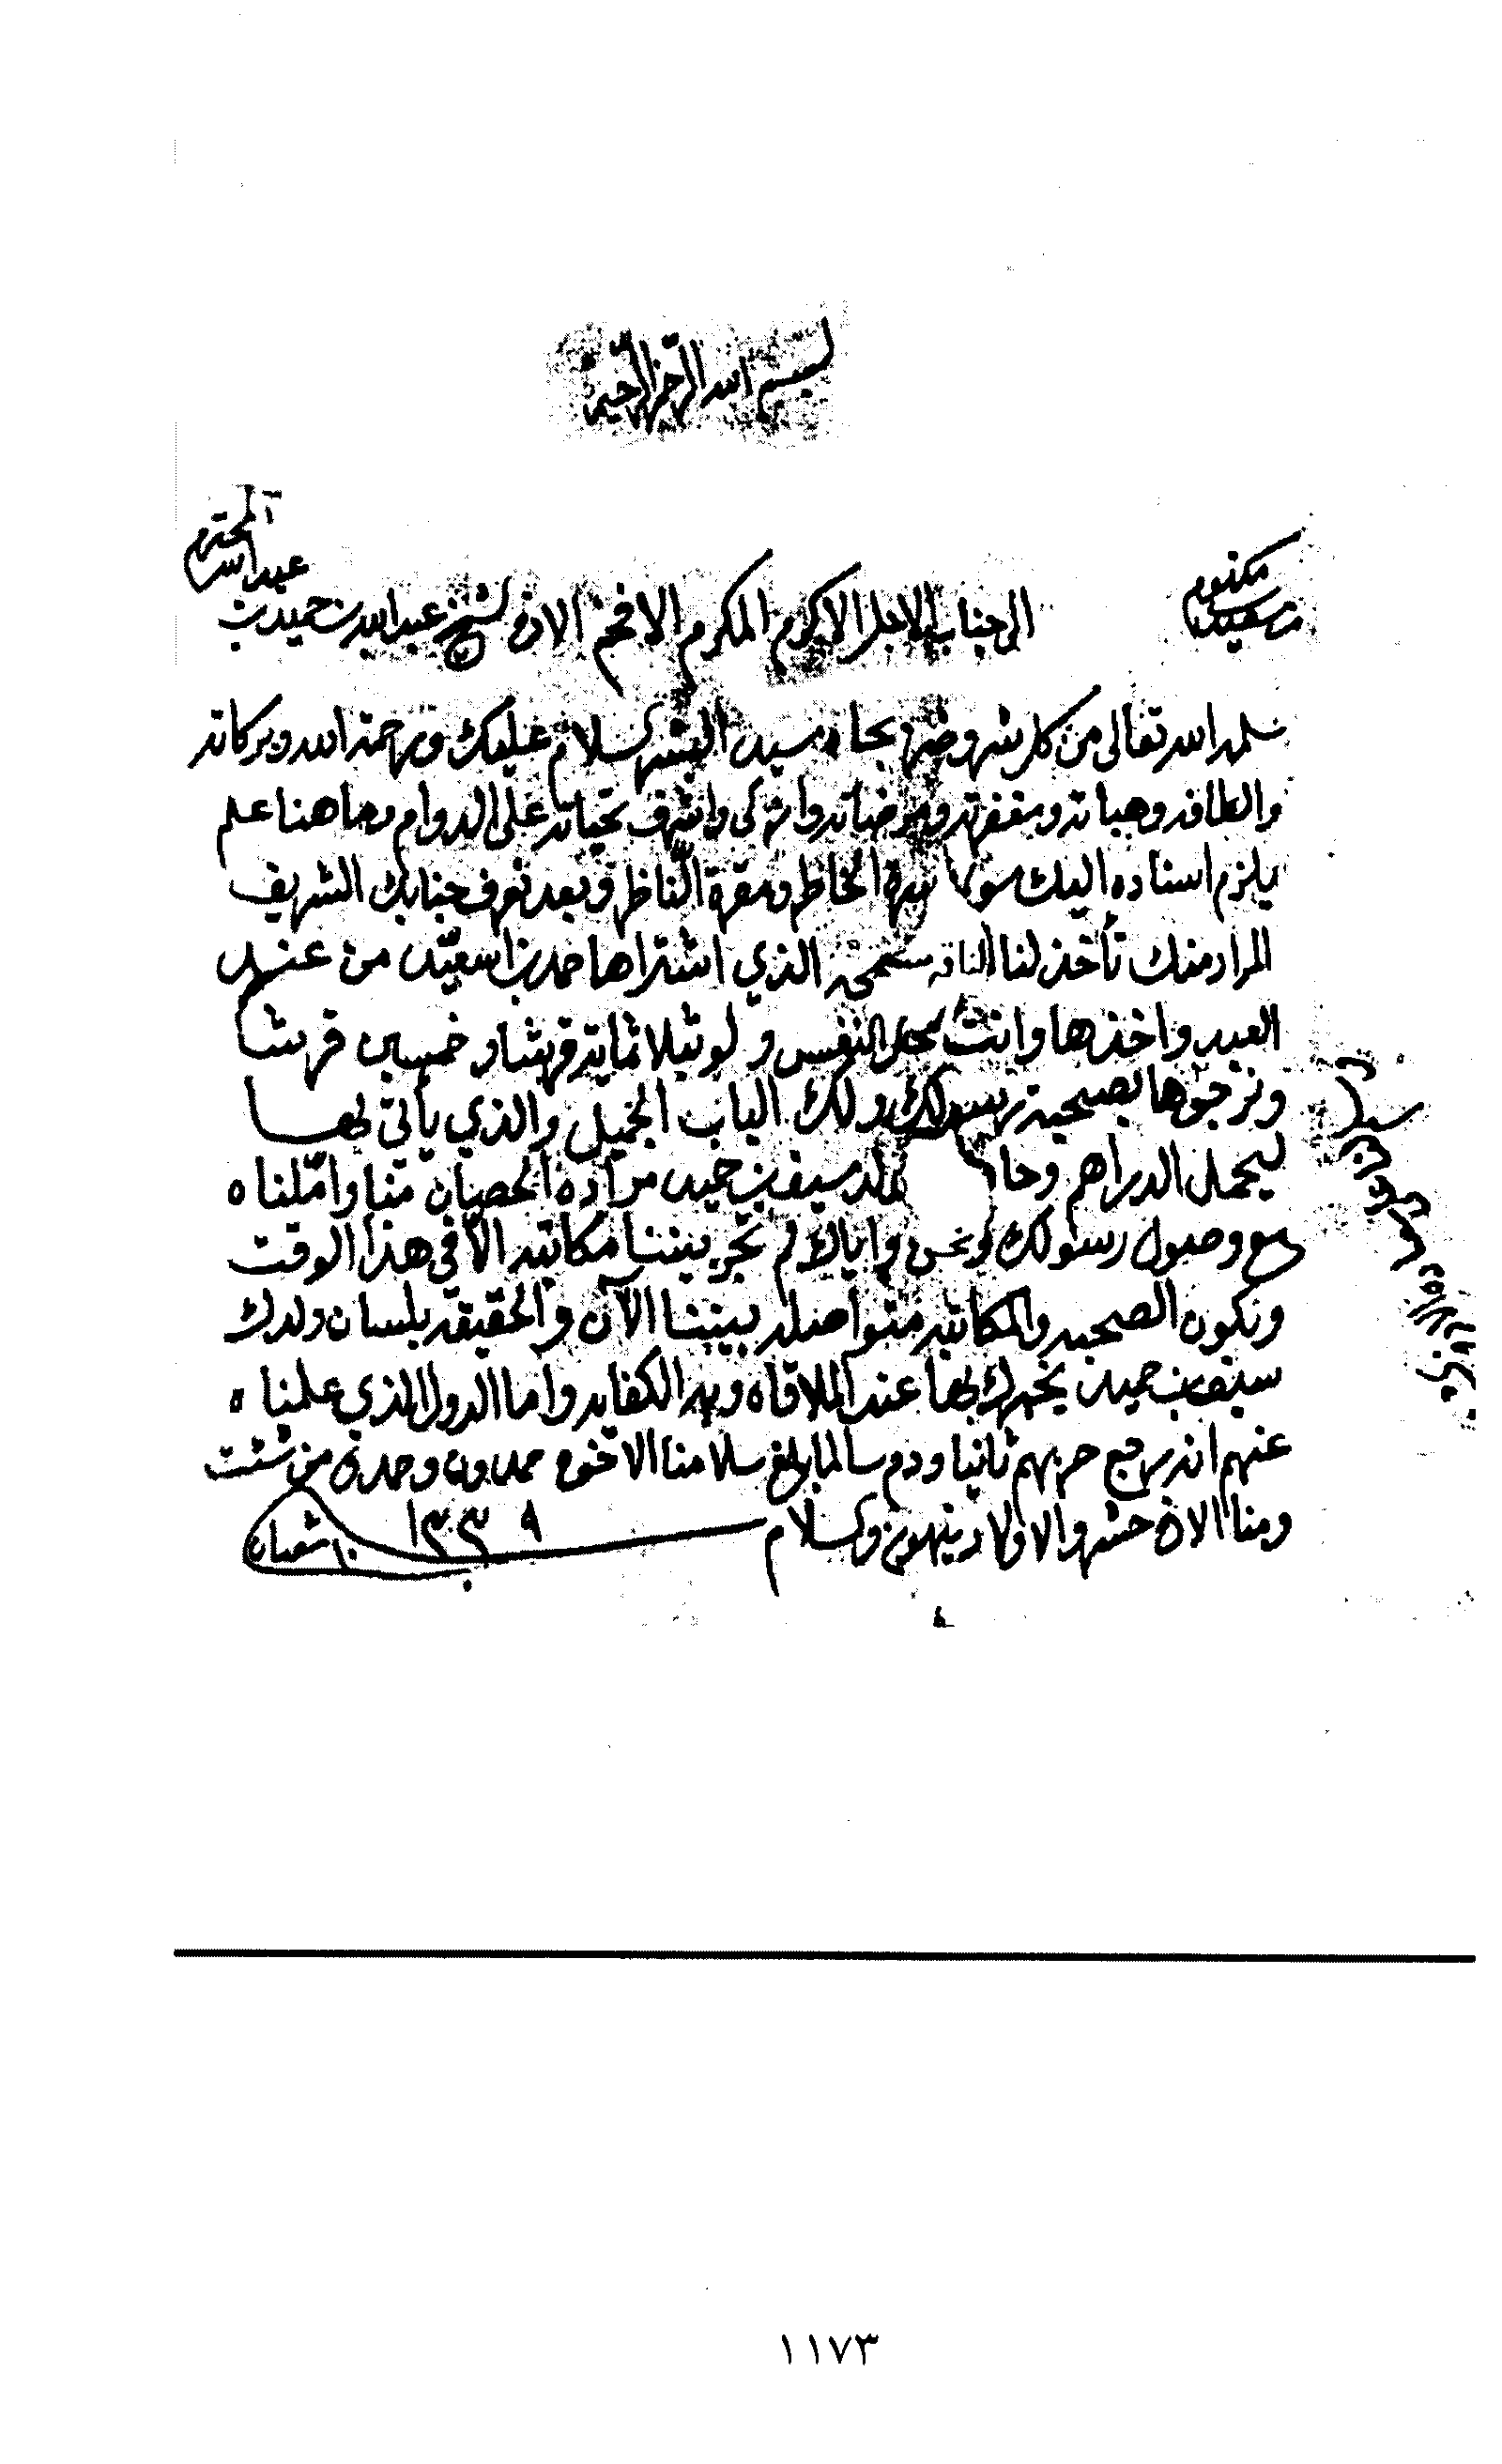 بسم الله الرحمن الرحيم
من سعيد بن
مكتوم
الى جناب الاجل الاكرم المكرم الافخم الاخ الشيخ عبدالله بن حميد بن
عبدالله
المحترم
سلمه الله تعالى من كل شر وضر بجاه سيد البشر السلام عليك ورحمة الله وبركاته
والطافه وهباته ومغفرته ومرضاته وازكى واشرف تحياته على الدوام وما هنا علم
يلزم اسناده اليك سوى سرة الخاطر ومقرة الناظر وبعد نعرف جنابك الشريف
المراد منك تأخذ لنا الناقه الذي اشتراها حمد بن اسعيّد من عند
العبيد واخذها وانت بمحل النفس ولو بثلاثمائة قرش او خمسين قرشا
ونرجوها بصحبة رسولك ولك الباب الجميل والذي يأتي لها
ليحمل الدراهم وحا سيف بن حميد مراده الحصان منا واملناه
مع وصول رسولك ونحن واياك لم تجر بيننا مكاتبه الا في هذا الوقت
ونكون الصحبه والمكاتبه متواصله بيننا الآن والحقيقه بلسان ولدك
سيف بن حميد يخبرك بها عند الملاقاه وبه الكفايه واما الدول الذي علمناه
عنهم انه رجع حربهم ثانيا ودم سالما بلغ سلامنا الاخوه ومن شئت
ومنا الاخ حشر والاولاد ينهون والسلام
١٠ شعبان ١٣٣٩
١١٧٣